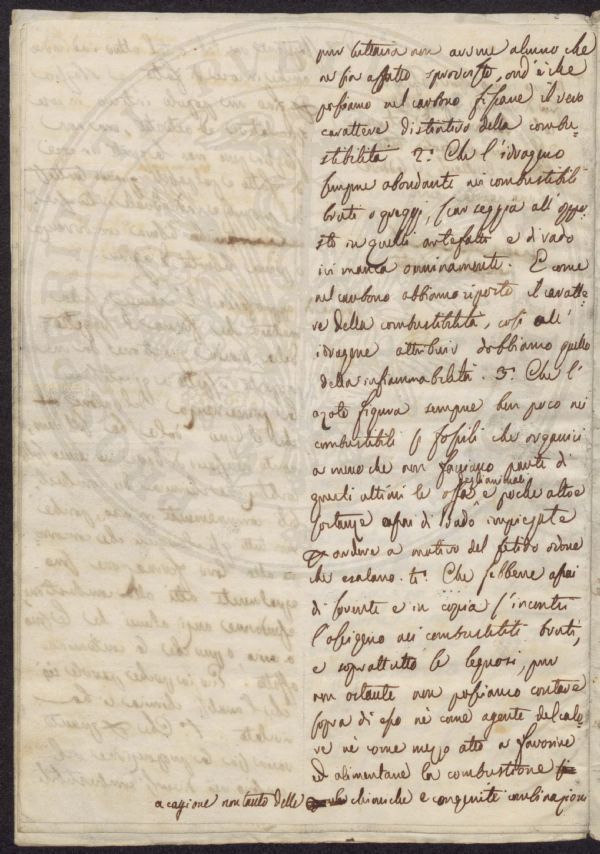 pur tuttavia non avvene alcuno che
ne sia affatto sprovvisto, ond'è che
possiamo nel carbono fissare il vero
carattere distintivo della combu-
stibilità 2.° Che l'idrogeno
sempre abondante nei combustibili
bruti o greggi, scarseggia all'oppo-
sto in quelli artefatti e di rado
vi manca onninamente. E come
nel carbono abbiamo riposto il caratte-
re della combustibilità, così all'
idrogene attribuir dobbiamo quello
della infiammabilità. 3.° Che l'
azoto figura sempre ben poco nei
combustibili sì fossili che organici
a meno che non facciano parte di
questi ultimi le ossa degli animali e poche altre
sostanze assai di rado impiegate
ardere a motivo del fetido odore
che esalano. Che sebbene assai
di sovente e in copia s'incontri
l'ossigeno nei combustibili bruti,
e soprattutto le legnosi, pur
non ostante non possiamo contare
sopra di esso nè come agente del calo-
re nè come mezzo atto a favorire
ed alimentare la combustione
a cagione non tanto delle chimiche e congenite combinazioni